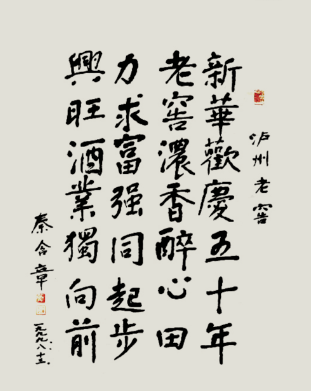 泸州老窖
新華歡慶五十年
老窖濃香醉心田
力求富强同起步
興旺酒業獨向前
秦含章
一九九八